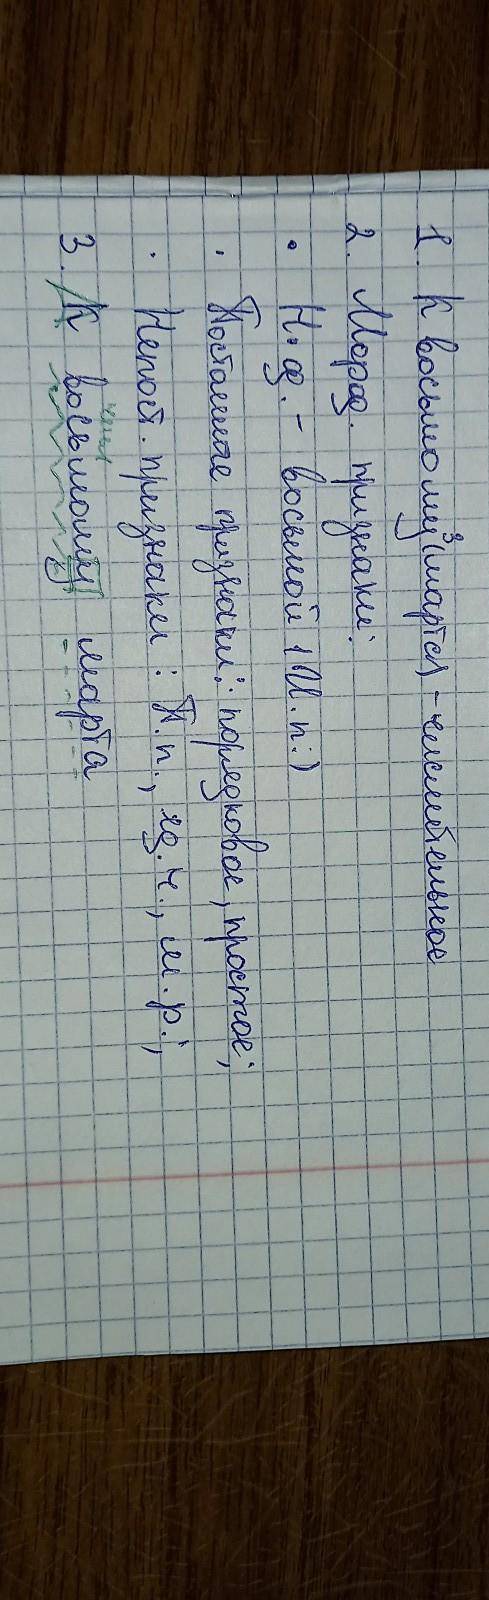 1. К восьмому³ (марта) - числительное
2. Морф. признаки:
• Н.ф. - восьмой (И.п.)
• Постоянные признаки: порядковое, простое;
• Непост. признаки: П.п., ед.ч., м.р.;
3. К восьмому марта